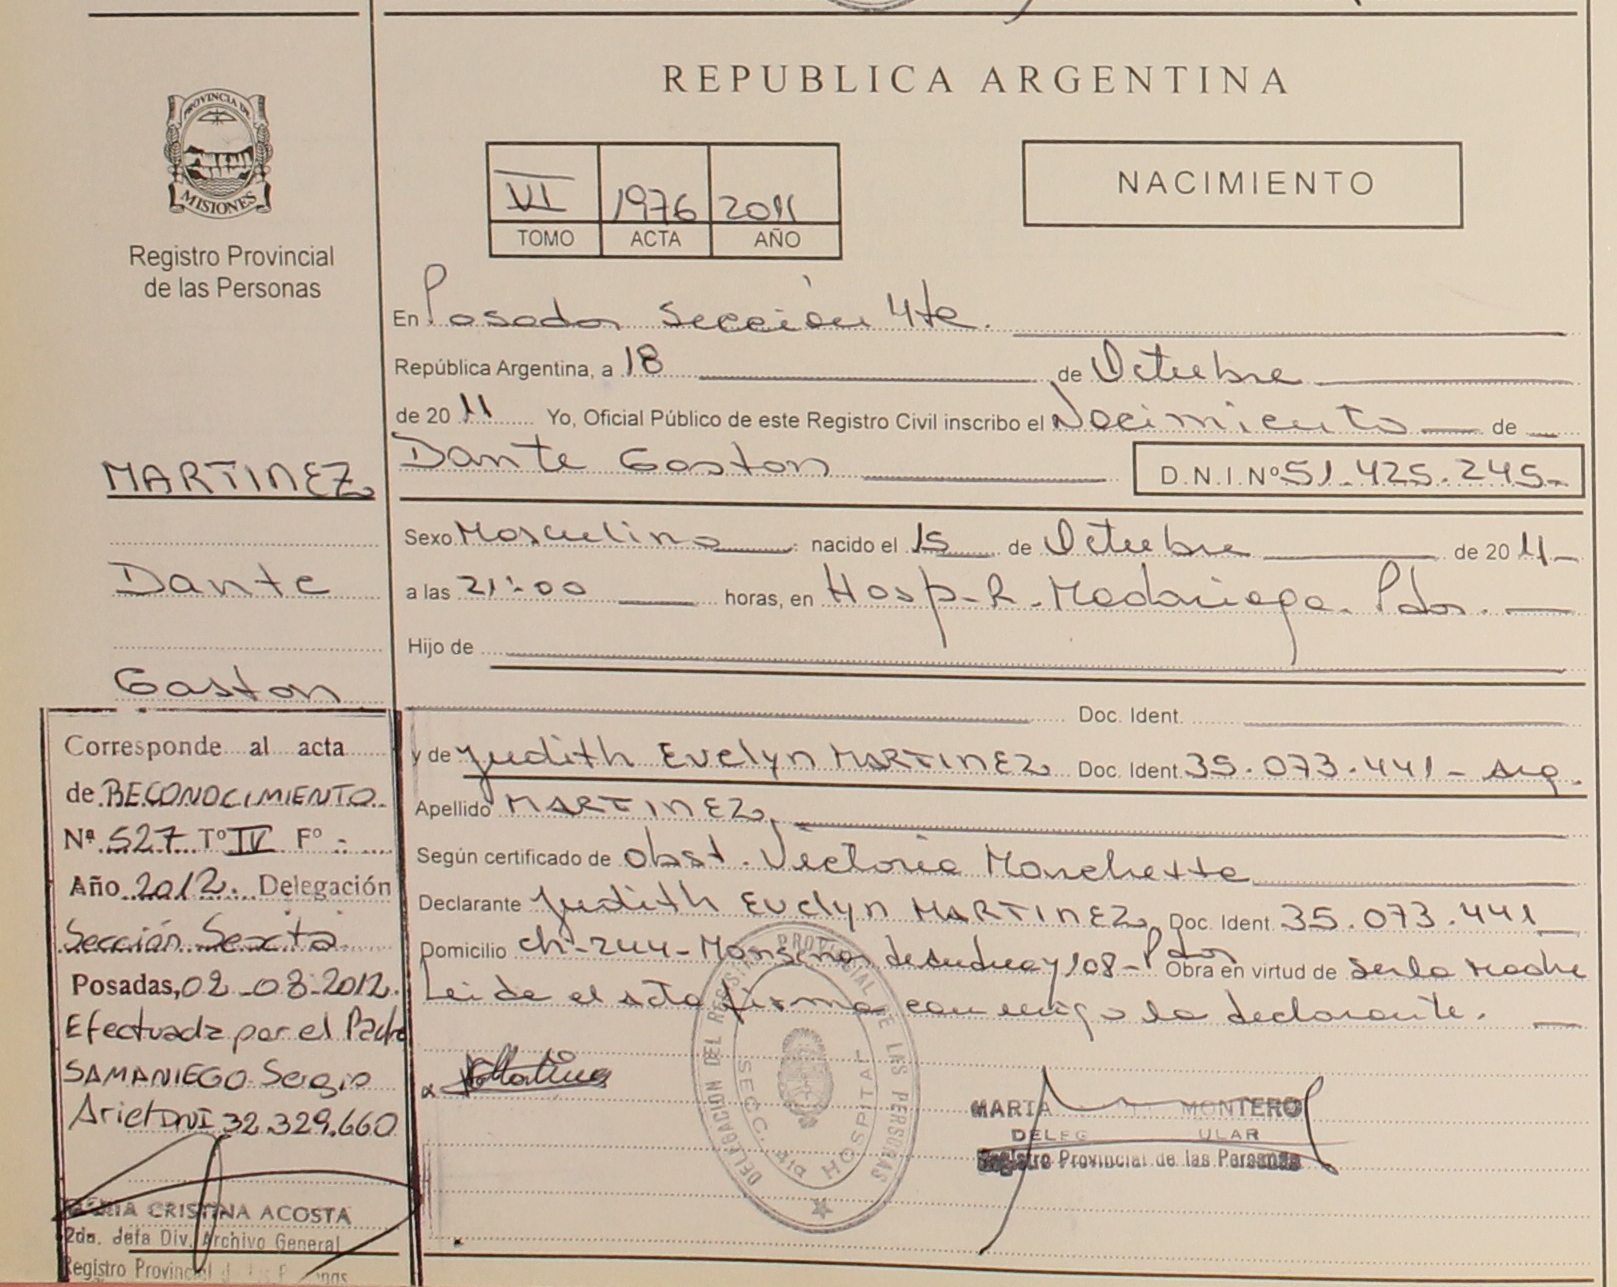 PROVINCIA DE
MISIONES
Registro Provincial
de las Personas
MARTINEZ
Dante
Gaston
Corresponde al acta
de RECONOCIMIENTO
Nº 527 Tº IV Fº -
Año 2012. Delegación
Sección Sexta
Posadas, 02-08-2012.
Efectuada por el Padre
SAMANIEGO Sergio
Ariel DNI 32.329.660
MARIA CRISTINA ACOSTA
2da. Jefa Div. Archivo General
Registro Provincial de las Personas
REPUBLICA ARGENTINA
VI 1976 2011
TOMO ACTA AÑO
NACIMIENTO
En Posadas Sección 4ta.
República Argentina, a 18 de Octubre
de 2011 Yo, Oficial Público de este Registro Civil inscribo el Nacimiento de
Dante Gaston D.N.I.Nº 51.425.245-
Sexo Masculino nacido el 15 de Octubre de 2011-
a las 21:00 horas, en Hosp. R. Madariaga. Pdas.
Hijo de
Doc. Ident.
y de Judith Evelyn MARTINEZ Doc. Ident. 35.073.441- Arg.
Apellido MARTINEZ
Según certificado de Obst. Victoria
Declarante Judith Evelyn MARTINEZ Doc. Ident. 35.073.441
Domicilio Ch-244- Monseñor de Andrea y 108- Pdas Obra en virtud de ser la Madre
Leida el acta firma conmigo la declarante.
DELEGACION DEL REGISTRO PROVINCIAL DE LAS PERSONAS
SECC. 4ta HOSPITAL
MARTA MONTERO
Registro Provincial de las Personas